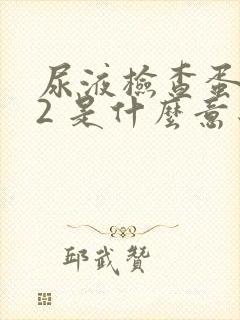 尿液檢查蛋
2 是什麼意
邱武贊